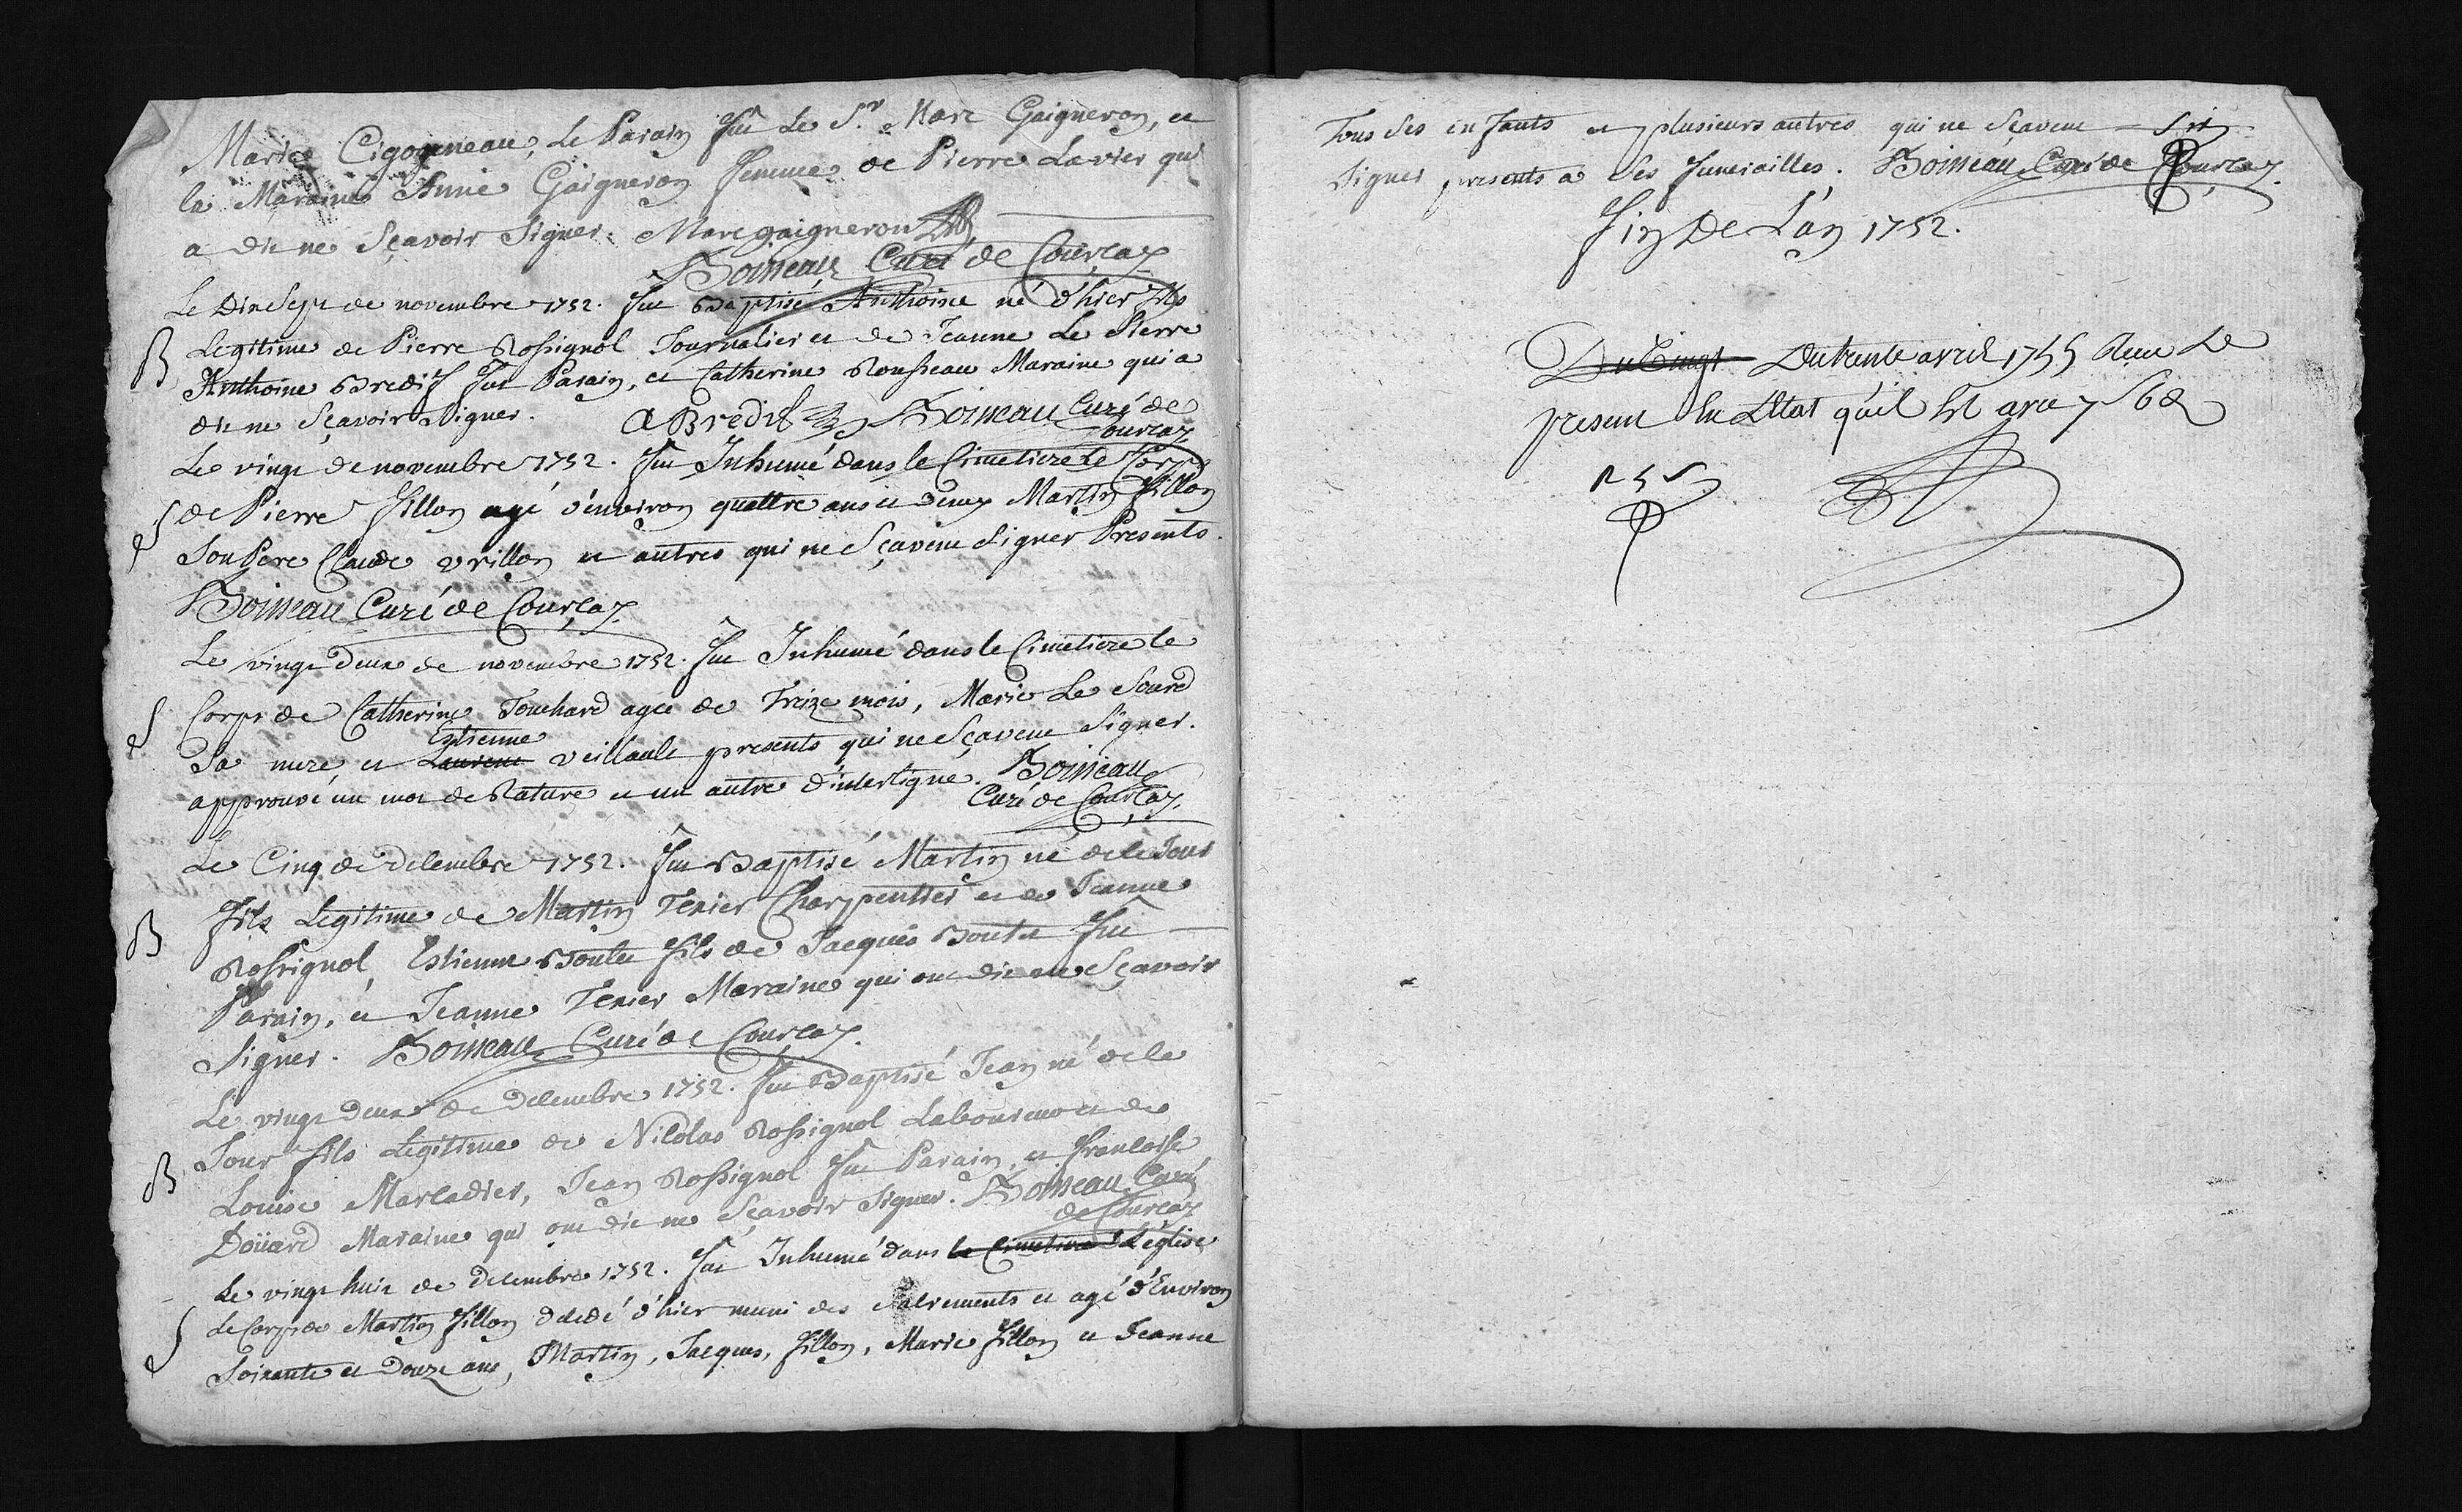 Marie Cigogneau, Le Parain fut Le Sr. Marc Gaigneron, et
la Maraine Anne Gaigneron femme de Pierre Lavier qui
a dit ne Sçavoir Signer. Marc gaigneron
Boisseau Curé de Courçay
Le Dix Sept de novembre 1752. fut Baptisé Anthoine né d'hier fils
B Legitime de Pierre Rossignol Journalier et de Jeanne Le Pierre
Anthoine Bredif fut Parain, et Catherine Rousseau Maraine qui a
dit ne Sçavoir Signer. A Bredif Boisseau Curé de
Courçay
Le vingt de novembre 1752. fut Inhumé dans le Cimetiere le Corps
S de Pierre fillon agé d'environ quattre ans et demy Martin fillon
Son Pere Claude vrillon et autres qui ne Sçavent Signer Presents.
Boisseau Curé de Courçay.
Le vingt Deux de novembre 1752. fut Inhumé dans le Cimetiere le
S Corps de Catherine Touchard agée de Treize mois, Marie Le Sourd
Estienne
Sa mere, et Laurent veillault presents qui ne Sçavent Signer.
approuvé un mot de Rature et un autre d'interligne. Boisseau
Curé de Courçay.
Le Cinq de Decembre 1752. fut Baptisé Martin né de ce Jour
B fils Legitime de Martin Texier Charpentier et de Jeanne
Rossignol, Estienne Boutet fils de Jacques Boutet fut
Parain, et Jeanne Texier Maraine qui ont dit ne Sçavoir
Signer. Boisseau Curé de Courçay.
Le vingt deux de Decembre 1752. fut Baptisé Jean né de ce
Jour fils Legitime de Nicolas Rossignol Laboureur et de
B Louise Marcadier, Jean Rossignol fut Parain, et francoise
Doüard Maraine qui ont dit ne Sçavoir Signer. Boisseau Curé
de Courçay
Le vingt huit de Decembre 1752. fut Inhumé dans le Cimetiere L'église
S Le Corps de Martin fillon decedé d'hier muni des Sacrements et agé d'Environ
Soixante et Douze ans, Martin, Jacques, fillon, Marie fillon et Jeanne
Tous Ses enfants et plusieurs autres qui ne Sçavent
Signer presents a Ses funerailles. Boisseau Curé de Courçay.
fin De L'an 1752.
Du trente avril 1755 Receu Le
present En L'Etat qu'il Est